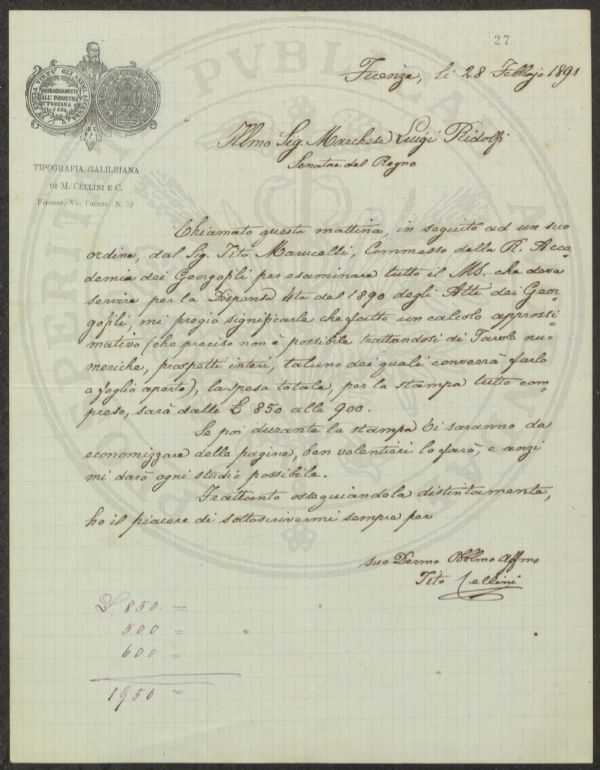 27
Firenze, li 28 Febbrajo 1891
Illmo Sig. Marchese Luigi Ridolfi
Senatore del Regno
TIPOGRAFIA GALILEIANA
DI M. CELLINI E C.
Firenze, Via Faenza, N. 72
Chiamato questa mattina, in seguito ad un suo
ordine, dal Sig. Tito Marucelli, Commesso della R. Acca-
demia dei Georgofili per esaminare tutto il MS. che deve
servire per la Dispensa 4ta del 1890 degli Atti dei Geor-
gofili, mi pregio significarle che fatto un calcolo approssi-
mativo (che preciso non è possibile trattandosi di Tavole nu-
meriche, prospetti interi, taluno dei quali converrà farlo
a foglio aperto), la spesa totale, per la stampa tutto com-
preso, sarà dalle £ 850 alle 900.
Se poi durante la stampa vi saranno da
economizzare delle pagine, ben volentieri lo farò, e anzi
mi darò ogni studio possibile.
Frattanto ossequiandola distintamente,
ho il piacere di sottoscrivermi sempre per
suo Devmo Obblmo Affmo
Tito Cellini
£. 850. =
500 =
600 =
1950 =